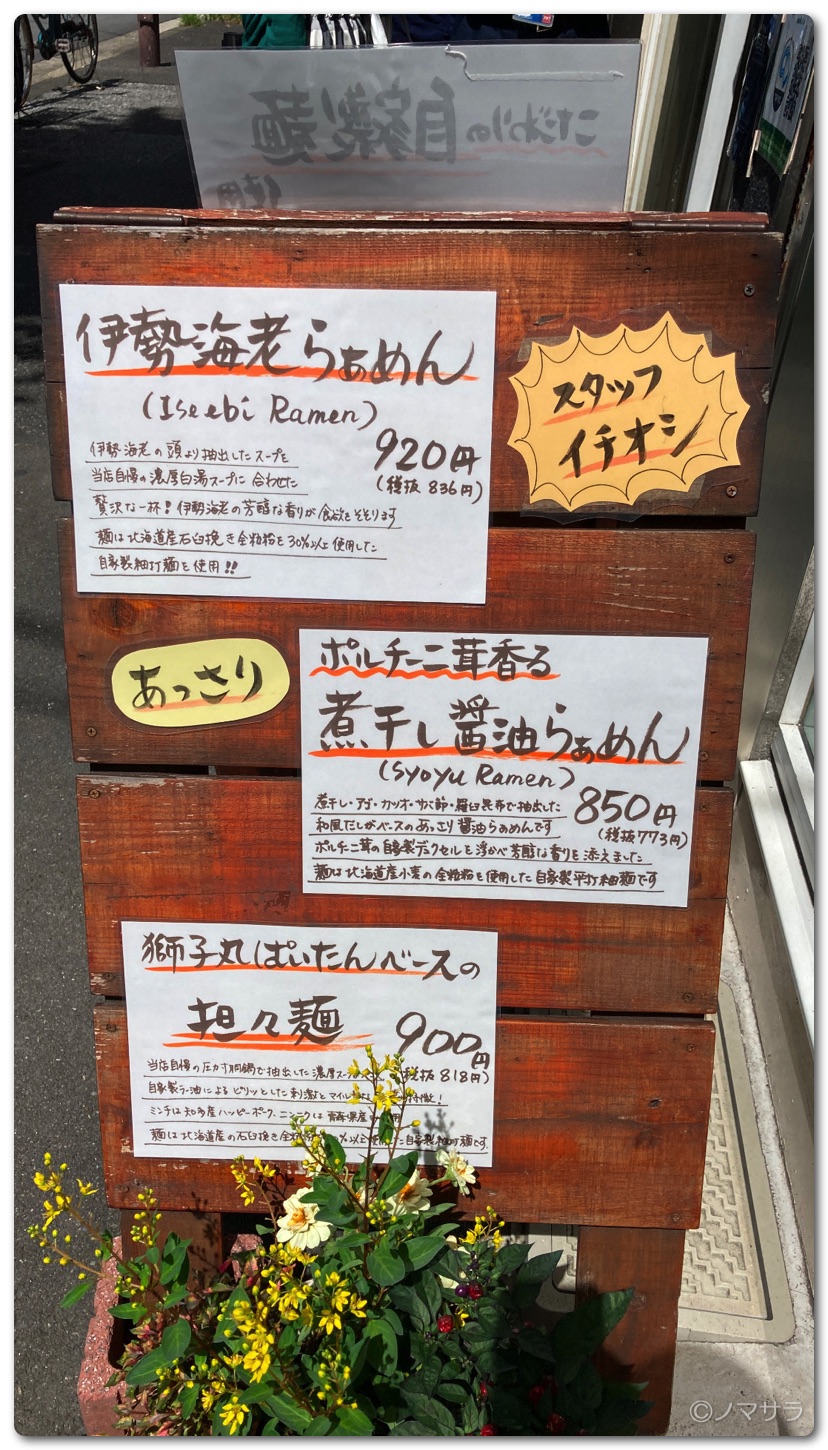 こだわりの自家製麺
使用
伊勢海老らぁめん
(Iseebi Ramen)
920円
(税抜 836円)
伊勢海老の頭より抽出したスープを
当店自慢の濃厚白湯スープに合わせた
贅沢な一杯!伊勢海老の芳醇な香りが食欲をそそります
麺は北海道産石臼挽き全粒粉を30%以上使用した
自家製細打麺を使用!!
スタッフ
イチオシ
あっさり
ポルチーニ茸香る
煮干し醤油らぁめん
(Syoyu Ramen)
850円
(税抜773円)
煮干し・アゴ・カツオ・サバ節・羅臼昆布で抽出した
和風だしがベースのあっさり醤油らぁめんです
ポルチーニ茸の自家製デュクセルを浮かべ芳醇な香りを添えました
麺は北海道産小麦の全粒粉を使用した自家製平打細麺です
獅子丸ぱいたんベースの
担々麺
900円
(税抜818円)
当店自慢の圧力寸胴鍋で抽出した濃厚スー
自家製ラー油によるピリッとした刺激とマイル 特徴!
ミンチは知多産ハッピーポーク、ニンニクは青森県産 用
麺は北海道産の石臼挽き全粒 %以上使用した自家製細打麺です.
©ノマサラ